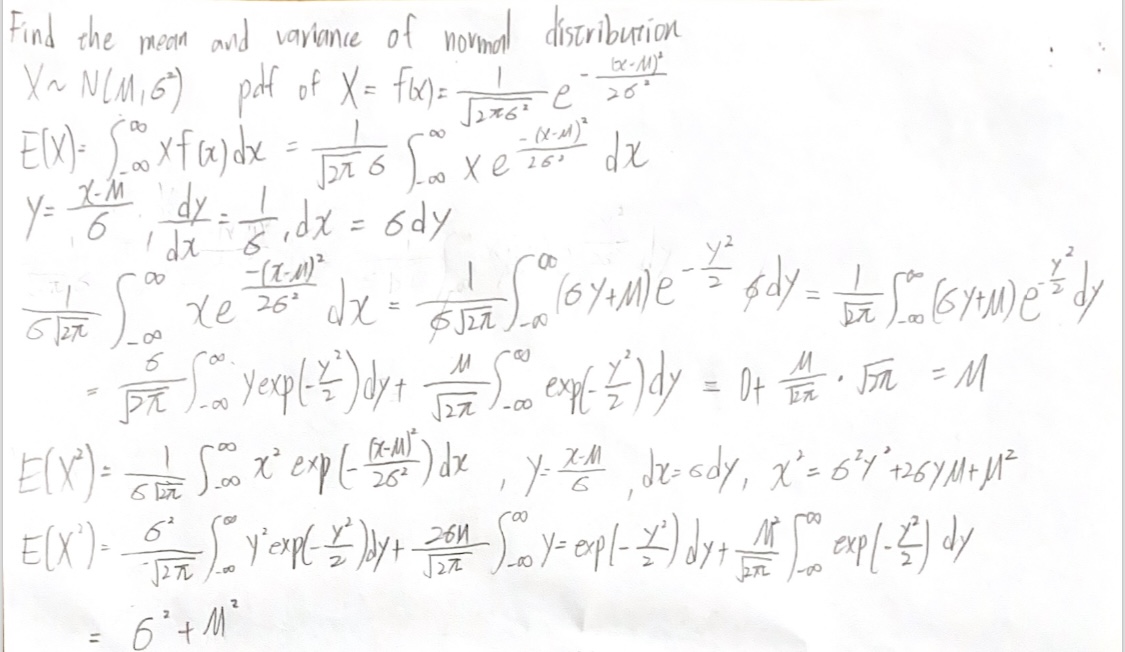 Find the mean and variance of normal distribution
X ~ N(μ, σ²)   pdf of X = f(x) = 1/√(2πσ²) e^(-(x-μ)²/2σ²)
E(X) = ∫_{-∞}^{∞} x f(x) dx = 1/(√(2π) σ) ∫_{-∞}^{∞} x e^(-(x-μ)²/2σ²) dx
y = (x-μ)/σ, dy/dx = 1/σ, dx = σ dy
1/(σ√(2π)) ∫_{-∞}^{∞} x e^(-(x-μ)²/2σ²) dx = 1/(σ√(2π)) ∫_{-∞}^{∞} (σy+μ) e^(-y²/2) σ dy = 1/√(2π) ∫_{-∞}^{∞} (σy+μ) e^(-y²/2) dy
= σ/√(2π) ∫_{-∞}^{∞} y exp(-y²/2) dy + μ/√(2π) ∫_{-∞}^{∞} exp(-y²/2) dy = 0 + μ/√(2π) · √(2π) = μ
E(X²) = 1/(σ√(2π)) ∫_{-∞}^{∞} x² exp(-(x-μ)²/2σ²) dx , y = (x-μ)/σ , dx = σ dy, x² = σ²y² + 2σyμ + μ²
E(X²) = σ²/√(2π) ∫_{-∞}^{∞} y² exp(-y²/2) dy + 2σμ/√(2π) ∫_{-∞}^{∞} y = exp(-y²/2) dy + μ²/√(2π) ∫_{-∞}^{∞} exp(-y²/2) dy
= σ² + μ²